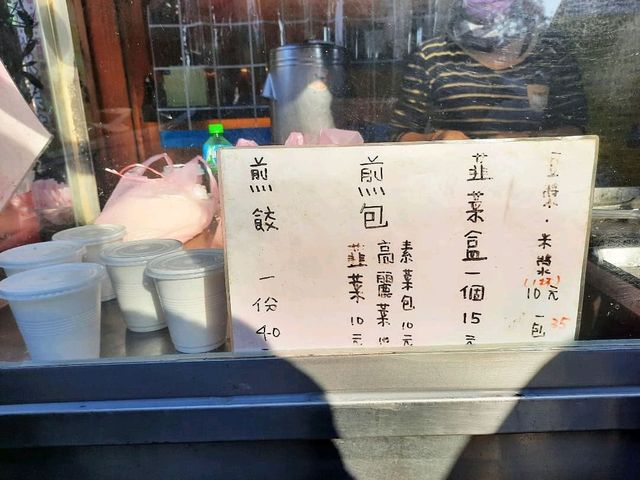 豆漿·米漿 10元 一包35
韮菜盒一個15元
煎包
素菜包10元
高麗菜10元
韮菜10元
煎餃一份40